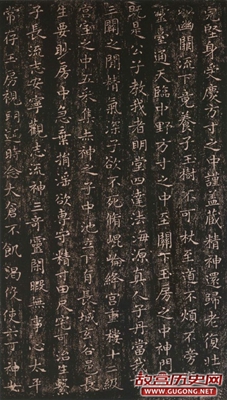 完堅身受慶方寸之中謹蓋藏精神還歸老復壯
以幽關流下竟養子玉樹不可杖至道不煩不旁
靈臺通天臨中野方寸之中至關下玉房之中神門
既是公子教我者明堂四達法海源真人子丹當我
三關之間精氣深子欲不死脩崐崘絳宮重樓十二級
宮室之中五采集赤神之子中池立下有長城玄谷邑長
生要眇房中急棄捐淫欲專守精寸田尺宅可治生繫
子長流志安寧觀志流神三奇靈閑暇無事脩太平
常存玉房視明達時念大倉不飢渴役使六丁神女
故宫历史网
www.GUGONG.NET